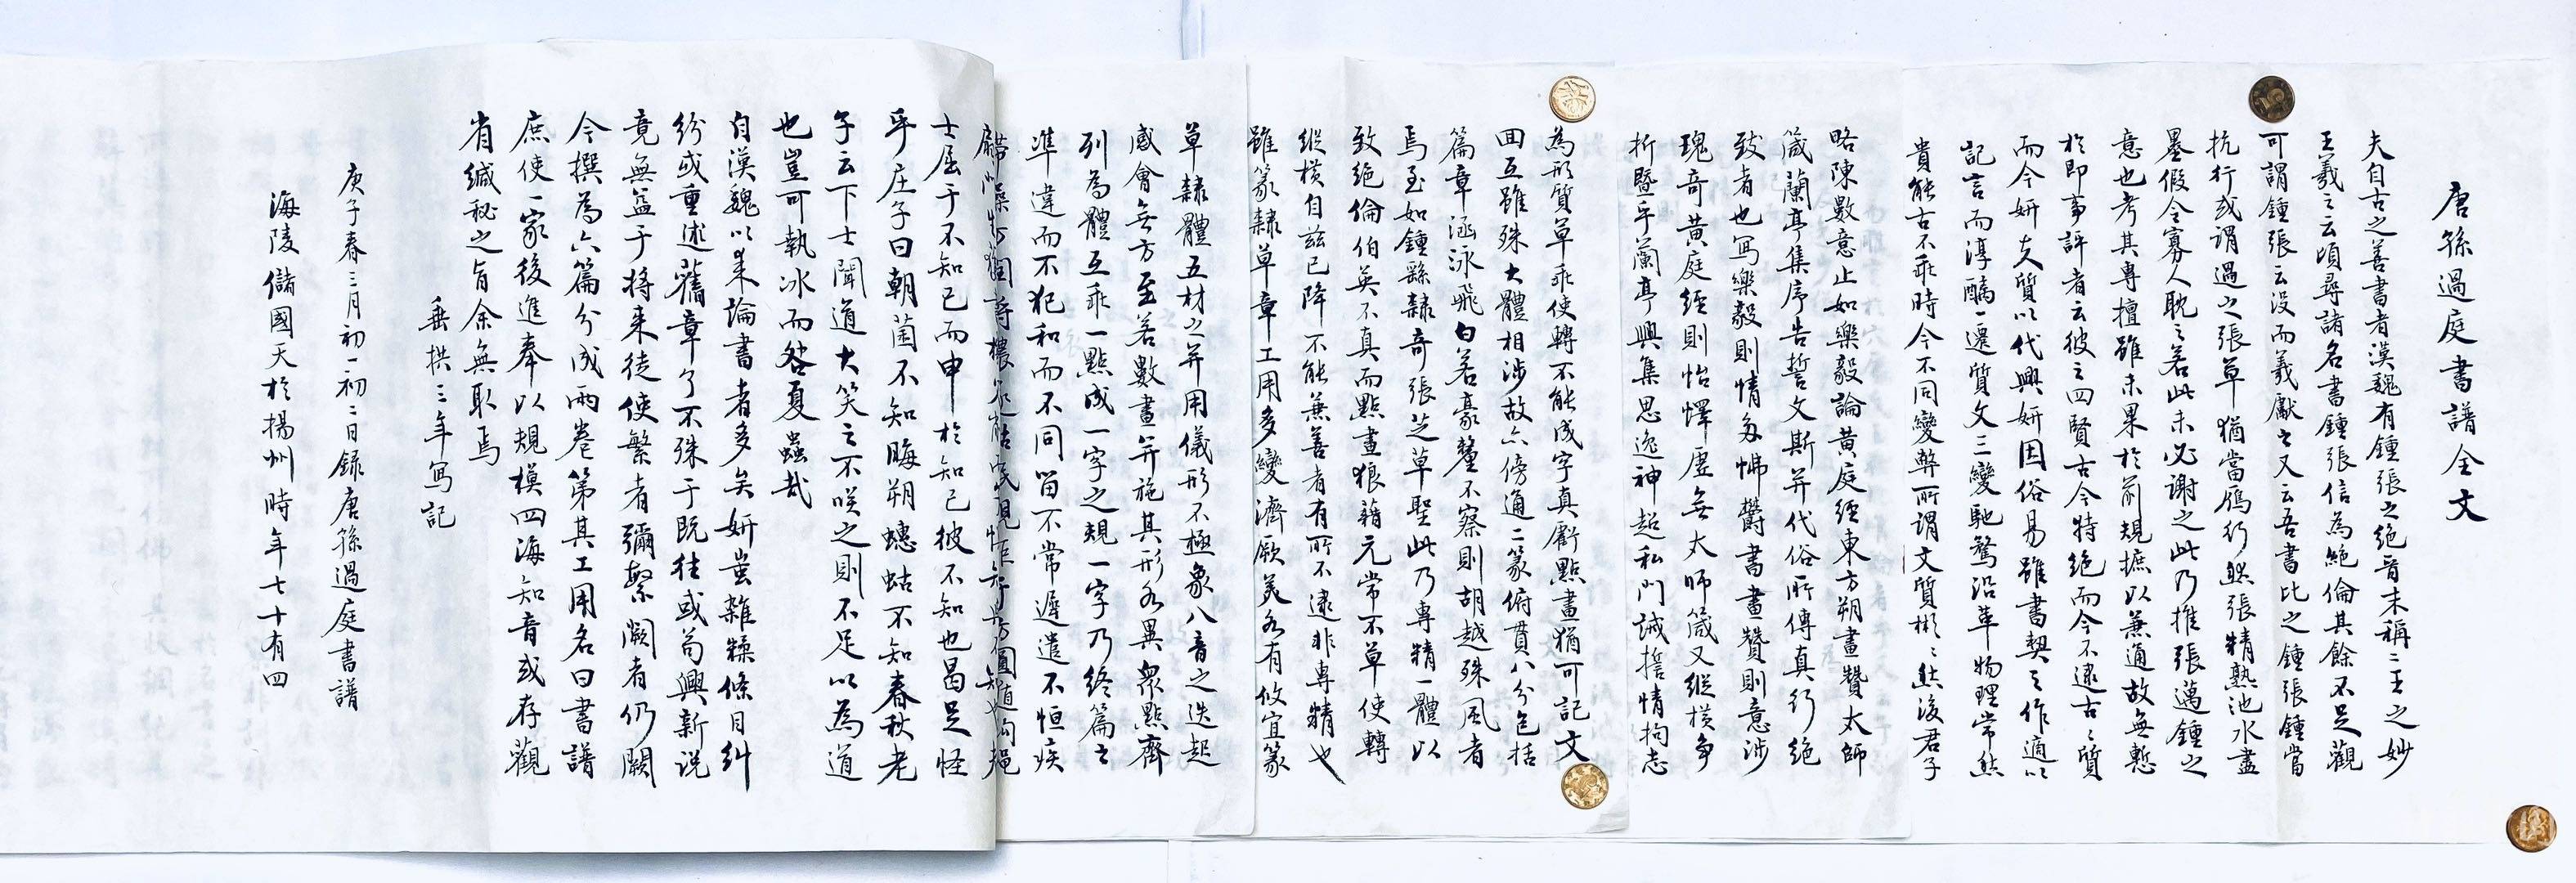 唐孫過庭書譜全文
夫自古之善書者漢魏有鍾張之絕晉末稱二王之妙
王羲之云頃尋諸名書鍾張信為絕倫其餘不足觀
可謂鍾張云沒而羲獻之又云吾書比之鍾張鍾當
抗行或謂過之張草猶當鴈行然張精熟池水盡
墨假令寡人耽之若此未必謝之此乃推張邁鍾之
意也考其專擅雖未果於前規摭以兼通故無慙
於即事評者云彼之四賢古今特絕而今不逮古古質
而今妍夫質以代興妍因俗易雖書契之作適以
記言而淳醨一遷質文三變馳騖沿革物理常然
貴能古不乖時今不同變弊所謂文質彬彬然後君子
略陳數意止如樂毅論黃庭經東方朔畫贊太師
箴蘭亭集序告誓文斯并代俗所傳真行絕
致者也写樂毅則情多怫鬱書畫贊則意涉
瑰奇黃庭經則怡懌虛無太師箴又縱橫争
折暨乎蘭亭興集思逸神超私門誡誓情拘志
為形質草乖使轉不能成字真虧點畫猶可記文
回互雖殊大體相涉故亦傍通二篆俯貫八分包括
篇章涵泳飛白若豪釐不察則胡越殊風者
焉至如鍾繇隸奇張芝草聖此乃專精一體以
致絕倫伯英不真而點畫狼藉元常不草使轉
縱橫自兹已降不能兼善者有所不逮非專精也
雖篆隸草章工用多變濟厥美各有攸宜篆
草隸體五材之并用儀形不極象八音之迭起
感會無方至若數畫并施其形各異衆點齊
列為體互乖一點成一字之規一字乃終篇之
準違而不犯和而不同留不常遲遣不恒疾
士屈于不知己而申於知己彼不知也曷足怪
乎庄子曰朝菌不知晦朔蟪蛄不知春秋老
子云下士聞道大笑之不咲之則不足以為道
也豈可執冰而咎夏蟲哉
自漢魏以来論書者多矣妍蚩雜糅條目糾
紛或重述舊章了不殊于既往或苟興新说
竟無益于将来徒使繁者彌繁闕者仍闕
今撰為六篇分成兩卷第其工用名曰書譜
庶使一家後進奉以規模四海知音或存觀
省缄秘之旨余無取焉
垂拱三年写記
庚子春三月初一初二日録唐孫過庭書譜
海陵儲國天於揚州時年七十有四